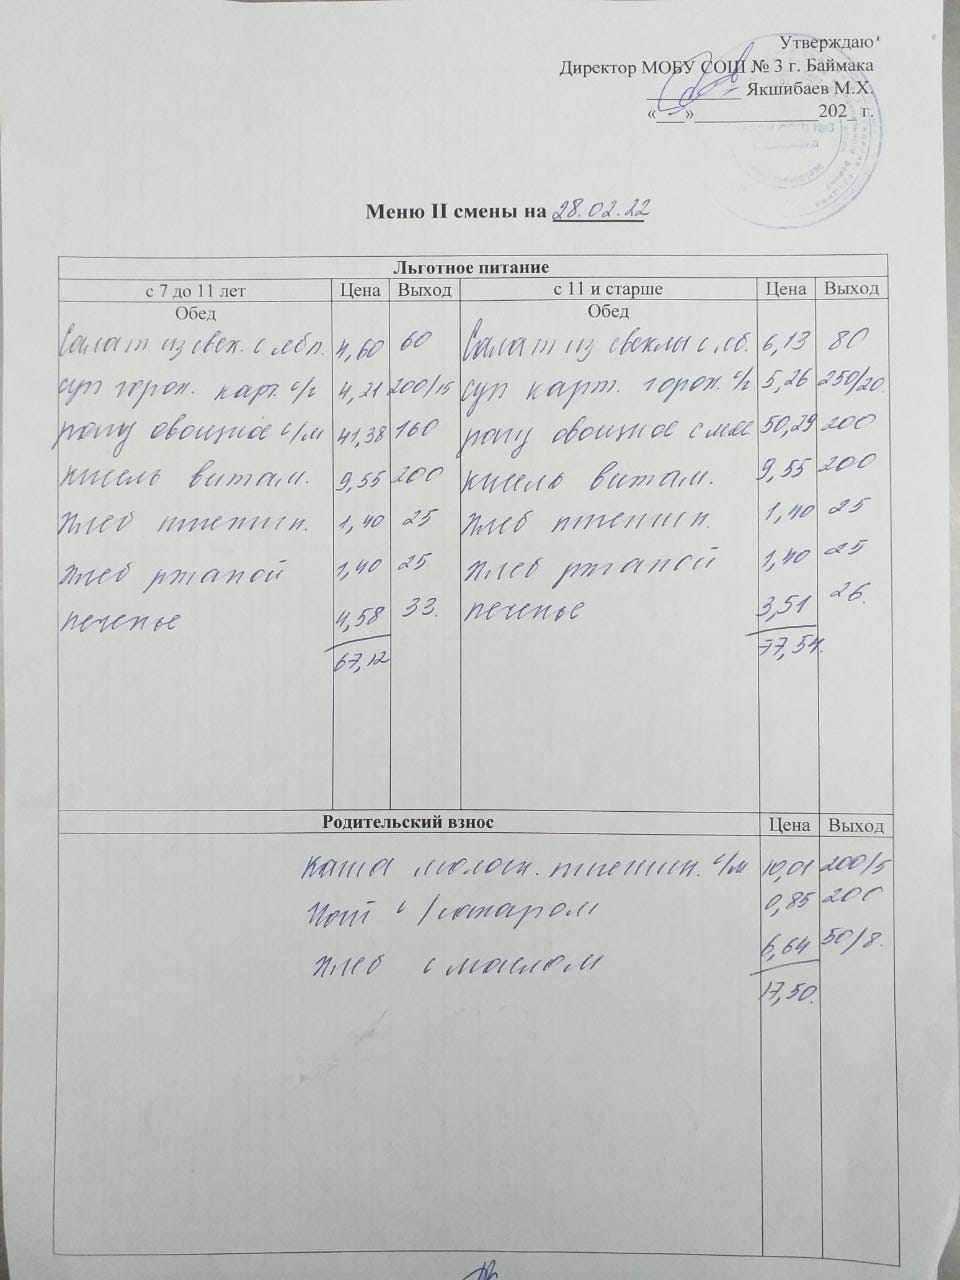 Утверждаю
Директор МОБУ СОШ № 3 г. Баймака
Якшибаев М.Х.
«___»______________202_ г.
Меню II смены на 28.02.22
Льготное питание
с 7 до 11 лет Цена Выход с 11 и старше Цена Выход
Обед Обед
Салат из свек. с яб л. 4,60 60 Салат из свеклы с яб. 6,13 80
суп горох. карт. с/г 4,21 200/15 суп карт. горох. с/г 5,26 250/20
рагу овощное с/м 41,38 160 рагу овощное с мяс 50,29 200
кисель витам. 9,55 200 кисель витам. 9,55 200
хлеб пшенич. 1,40 25 хлеб пшенич. 1,40 25
хлеб ржаной 1,40 25 хлеб ржаной 1,40 25
печенье 4,58 33. печенье 3,51 26.
67,12 77,54.
Родительский взнос Цена Выход
Каша молочн. пшенич. с/м 10,01 200/5
с/сахаром 0,85 200
хлеб с маслом 6,64 50/8.
17,50.